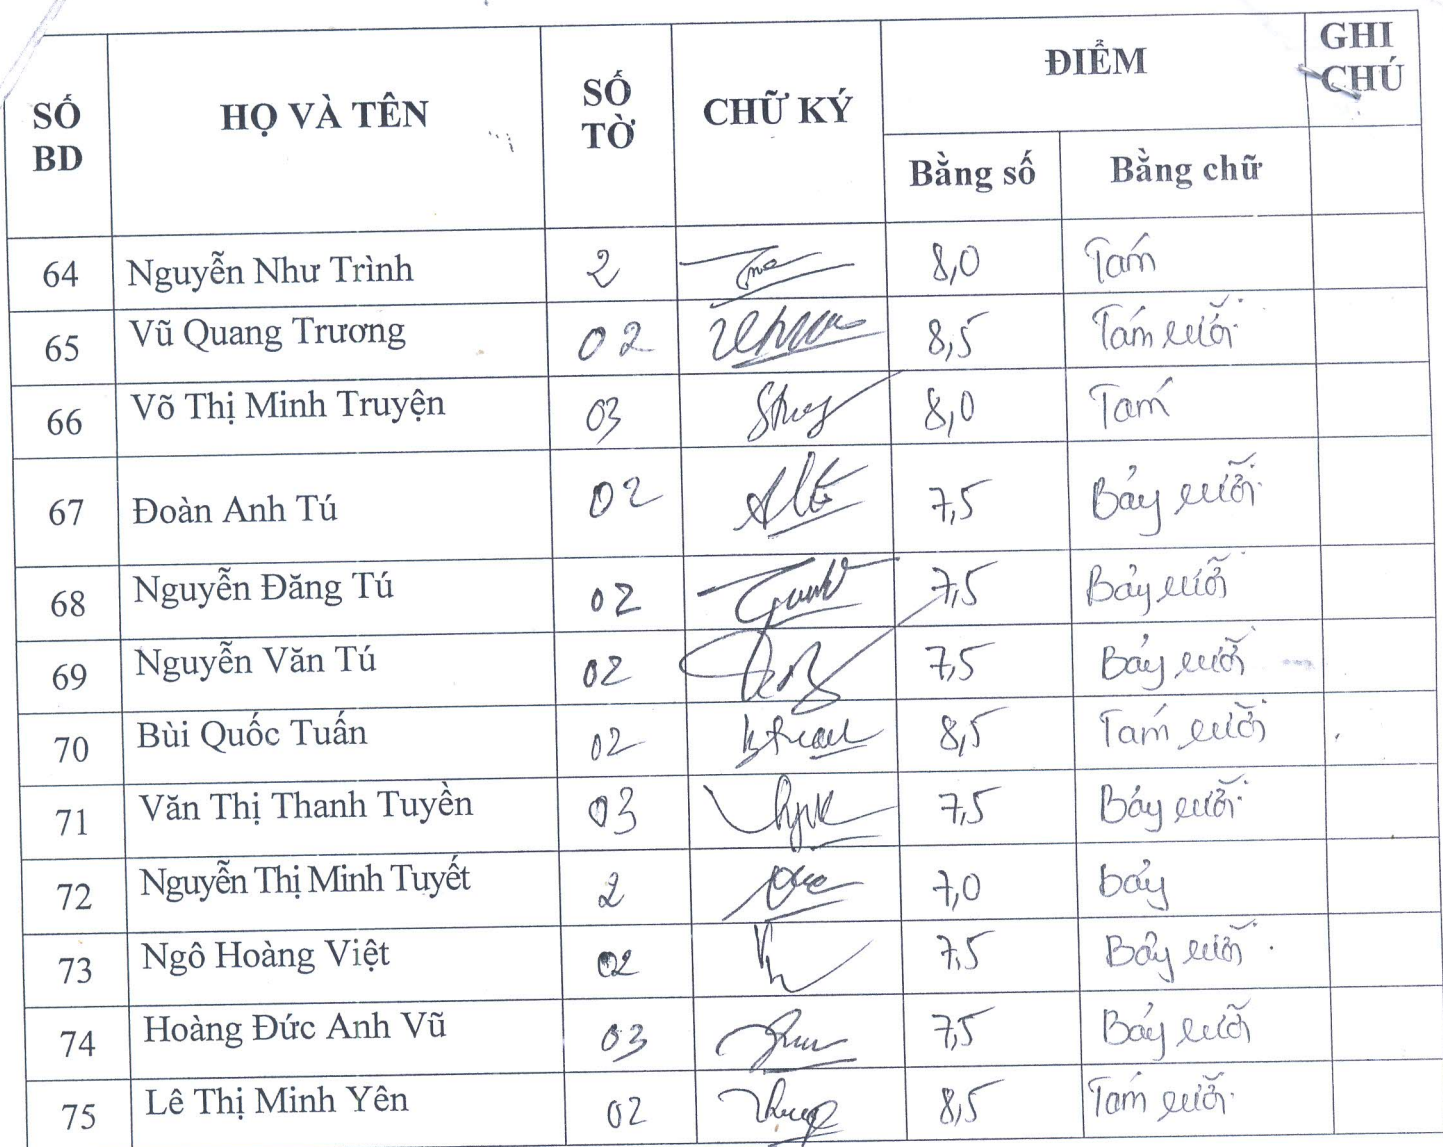 SỐ BD HỌ VÀ TÊN SỐ TỜ CHỮ KÝ ĐIỂM GHI CHÚ
Bằng số Bằng chữ
64 Nguyễn Như Trình 2 8,0 Tám
65 Vũ Quang Trương 02 8,5 Tám rưỡi
66 Võ Thị Minh Truyện 03 8,0 Tám
67 Đoàn Anh Tú 02 7,5 Bảy rưỡi
68 Nguyễn Đăng Tú 02 7,5 Bảy rưỡi
69 Nguyễn Văn Tú 02 7,5 Bảy rưỡi
70 Bùi Quốc Tuấn 02 8,5 Tám rưỡi
71 Văn Thị Thanh Tuyền 03 7,5 Bảy rưỡi
72 Nguyễn Thị Minh Tuyết 2 7,0 bảy
73 Ngô Hoàng Việt 02 7,5 Bảy rưỡi
74 Hoàng Đức Anh Vũ 03 7,5 Bảy rưỡi
75 Lê Thị Minh Yên 02 8,5 Tám rưỡi